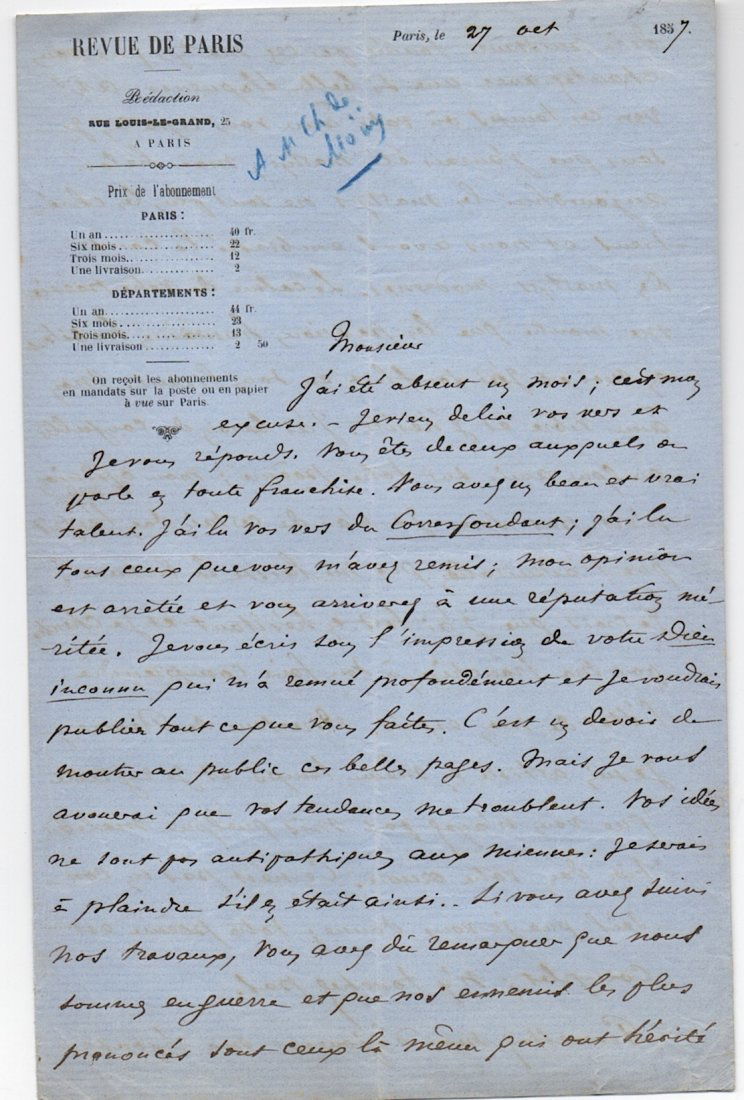 REVUE DE PARIS
Rédaction
RUE LOUIS-LE-GRAND, 25
A PARIS
Prix de l'abonnement
PARIS :
Un an 40 fr.
Six mois 22
Trois mois 12
Une livraison 2
DÉPARTEMENTS :
Un an 44 fr.
Six mois 23
Trois mois 13
Une livraison 2 50
On reçoit les abonnements
en mandats sur la poste ou en papier
à vue sur Paris.
Paris, le 27 oct 1857.
A M Ch de
Monsieur
J'ai été absent un mois ; c'est mon
excuse. – Je viens de lire vos vers et
Je vous réponds. Vous êtes de ceux auxquels on
parle en toute franchise. Vous avez un beau et vrai
talent. J'ai lu vos vers du Correspondant ; j'ai lu
tous ceux que vous m'avez remis ; mon opinion
est arrêtée et vous arriverez à une réputation mé-
ritée. Je vous écris sous l'impression de votre Dieu
inconnu qui m'a remué profondément et je voudrais
publier tout ce que vous faites. C'est un devoir de
montrer au public ces belles pages. Mais je vous
avouerai que vos tendances me troublent. Vos idées
ne sont pas antipathiques aux miennes : Je serais
à plaindre s'il en était ainsi.. Si vous avez suivi
nos travaux, vous avez dû remarquer que nous
sommes en guerre et que nos ennemis les plus
prononcés sont ceux là même qui ont hérité